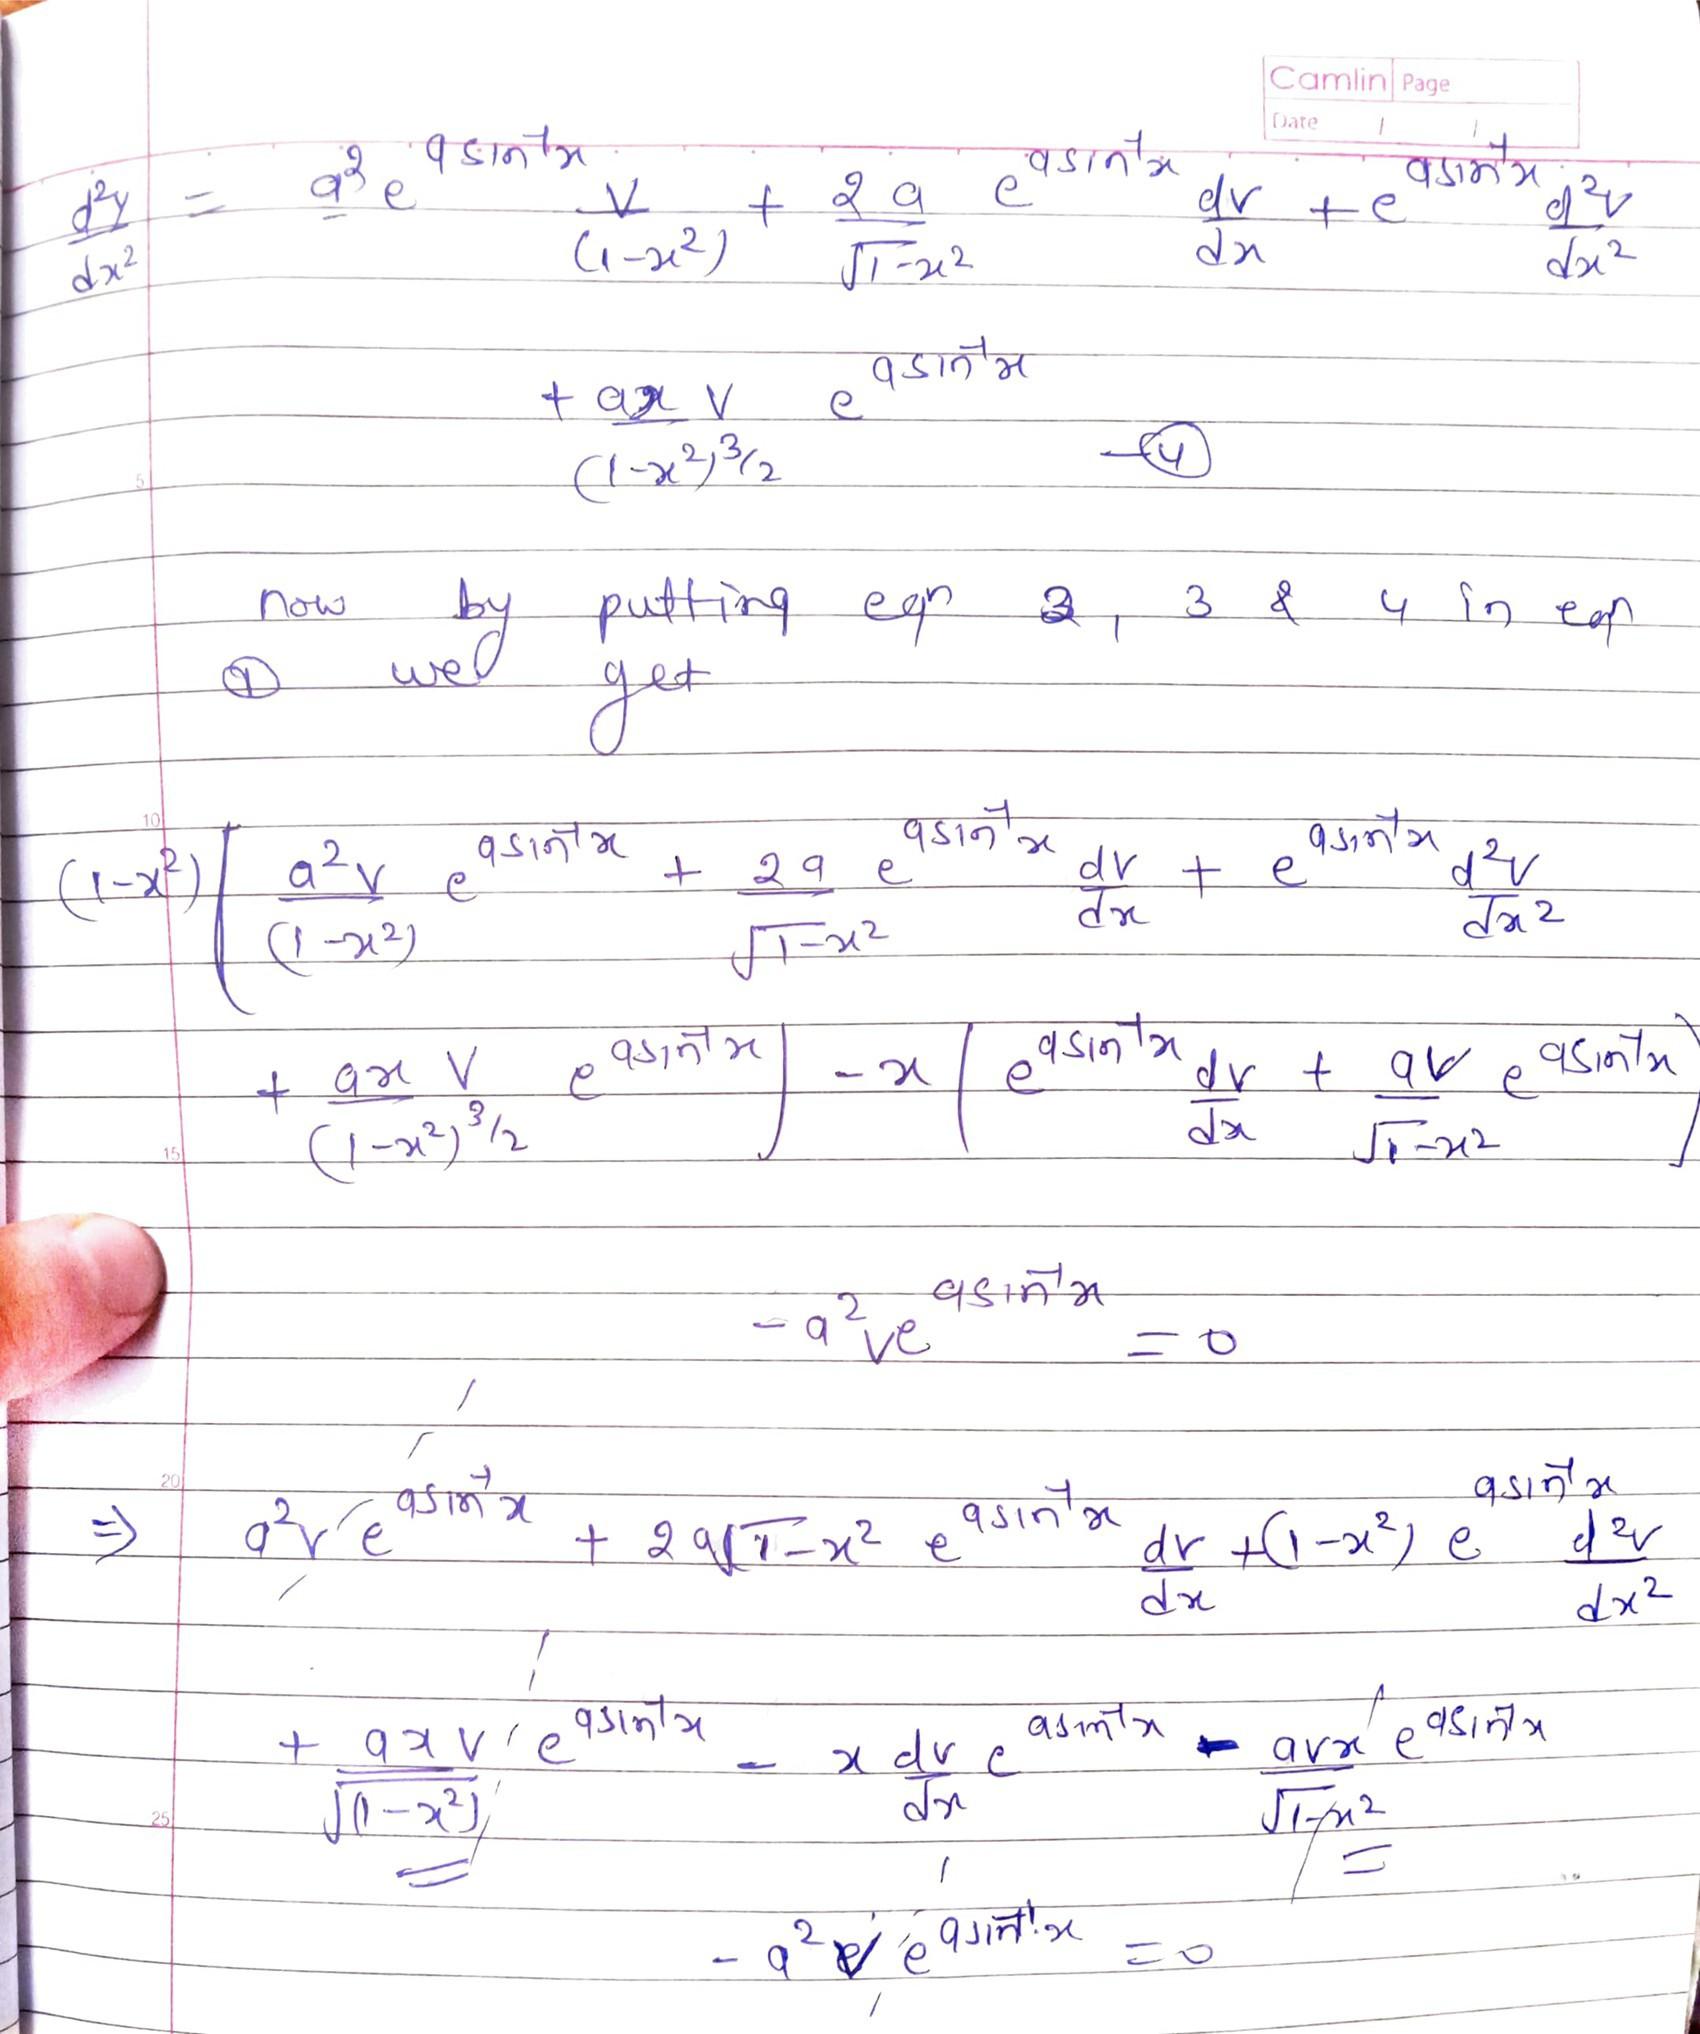 Camlin Page
Date / /
d²y/dx² = a² e^(a sin⁻¹x) v/(1-x²) + 2a/√(1-x²) e^(a sin⁻¹x) dv/dx + e^(a sin⁻¹x) d²v/dx²
+ ax v/(1-x²)^(3/2) e^(a sin⁻¹x) —④
5
now by putting eqn 2, 3 & 4 in eqn
① we get
10
(1-x²) [ a²v/(1-x²) e^(a sin⁻¹x) + 2a/√(1-x²) e^(a sin⁻¹x) dv/dx + e^(a sin⁻¹x) d²v/dx²
+ ax v/(1-x²)^(3/2) e^(a sin⁻¹x) ] - x [ e^(a sin⁻¹x) dv/dx + av/√(1-x²) e^(a sin⁻¹x) ]
15
- a²ve^(a sin⁻¹x) = 0
20
⇒ a²v e^(a sin⁻¹x) + 2a√(1-x²) e^(a sin⁻¹x) dv/dx + (1-x²) e^(a sin⁻¹x) d²v/dx²
+ axv/√(1-x²) e^(a sin⁻¹x) - x dv/dx e^(a sin⁻¹x) - avx/√(1-x²) e^(a sin⁻¹x)
25
- a²v e^(a sin⁻¹x) = 0